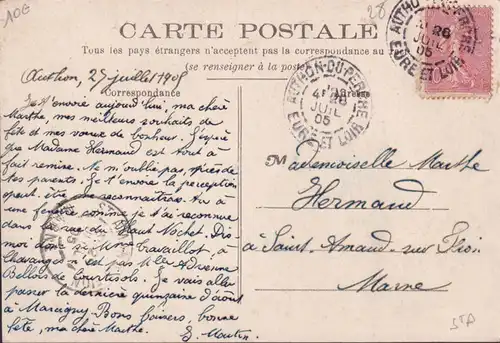 10E
28
CARTE POSTALE
Tous les pays étrangers n'acceptent pas la correspondance au
(se renseigner à la poste)
Correspondance
Adresse
AUTHON-DU-PERCHE
26
JUIL
05
EURE ET LOIR
AUTHON-DU-PERCHE
26
JUIL
05
EURE ET LOIR
Authon, 25 juillet 1905
Je t'envoie aujourd'hui, ma chère
Marthe mes meilleurs souhaits de
fête et mes vœux de bonheur. J'espère
que Madame Hermand est tout à
fait remise. Ne m'oublie pas auprès de
tes parents. Je t'envoie la perception
peut-être me reconnaîtras-tu à
une fenêtre comme je t'ai reconnue
dans la rue du Haut Nochet. Dis-
moi donc si Mme Travaillot, à
est pas Mlle Adrienne
Bellois de Courtisols. Je vais aller
passer la dernière quinzaine d'août
à Marcigny. Bons baisers, bonne
fête, ma chère Marthe.
E. Martin
Mademoiselle Marthe
Hermand
à Saint-Amand-sur-Fion
Marne
STA